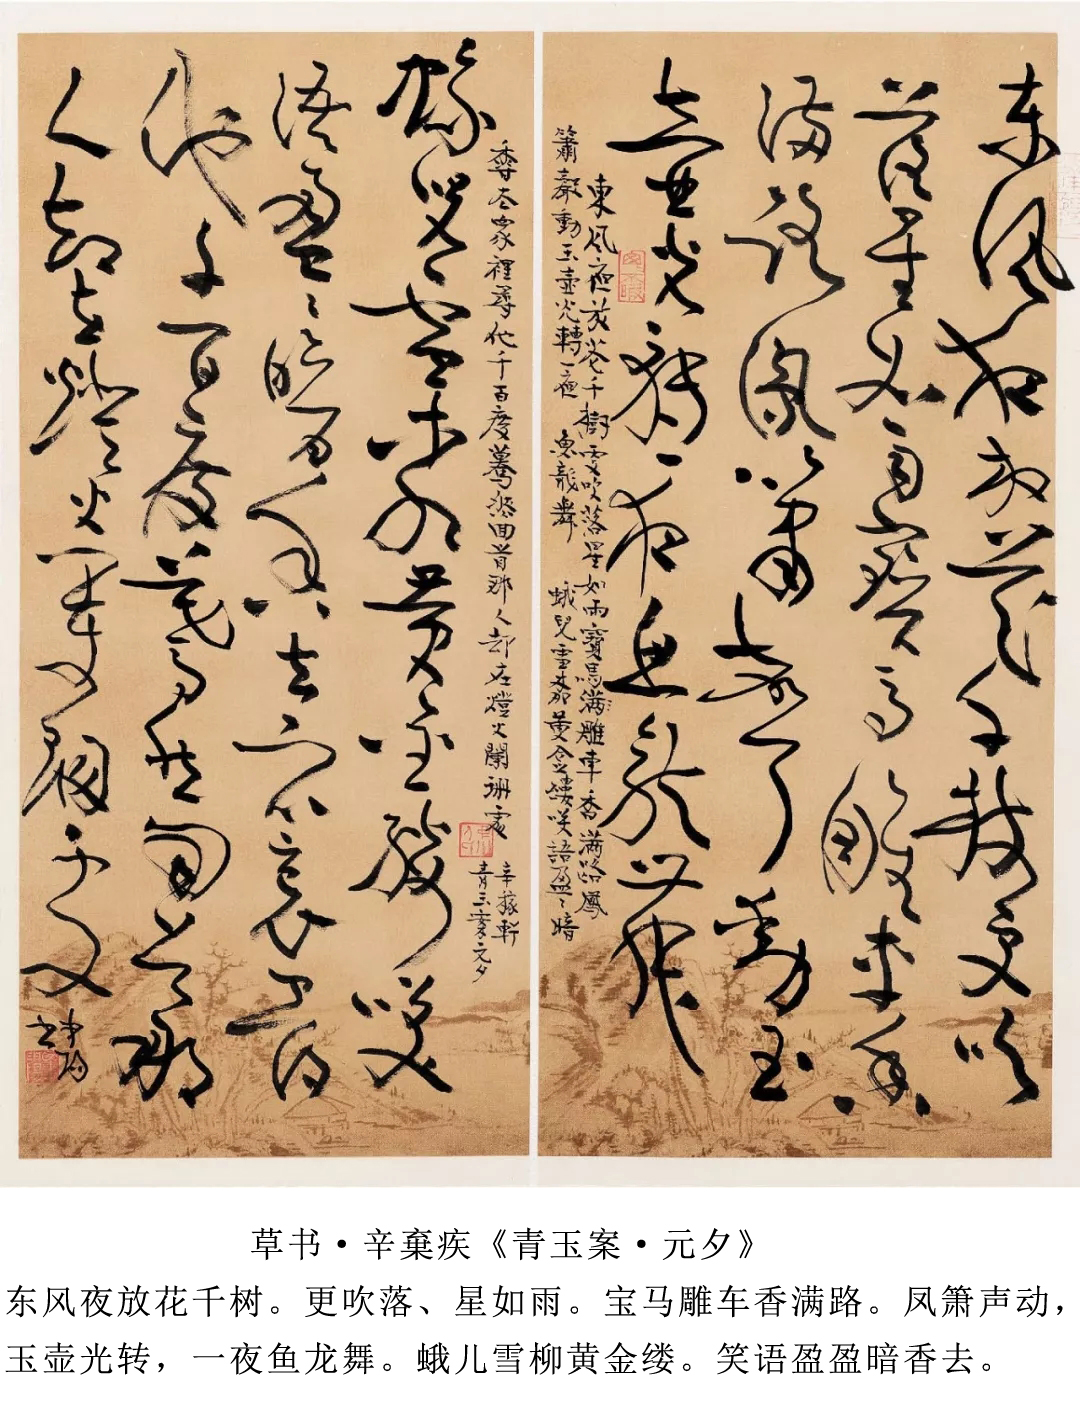 东風夜放花千樹更吹
落星如雨寶馬雕車香
滿路鳳簫聲動玉
壺光轉一夜魚龍舞
東風夜放花千樹更吹落星如雨寶馬滿雕車香滿路鳳
簫聲動玉壺光轉一夜 魚龍舞 蛾兒雪柳黃金縷笑語盈〻暗
香去衆裡尋他千百度驀然回首那人却在燈火闌珊處
辛稼軒
青玉案元夕
蛾兒雪柳黃金縷笑
語盈〻暗香去衆裏尋
他千百度驀然回首那
人却在燈火闌珊處
草书·辛棄疾《青玉案·元夕》
东风夜放花千树。更吹落、星如雨。宝马雕车香满路。凤箫声动，
玉壶光转，一夜鱼龙舞。蛾儿雪柳黄金缕。笑语盈盈暗香去。